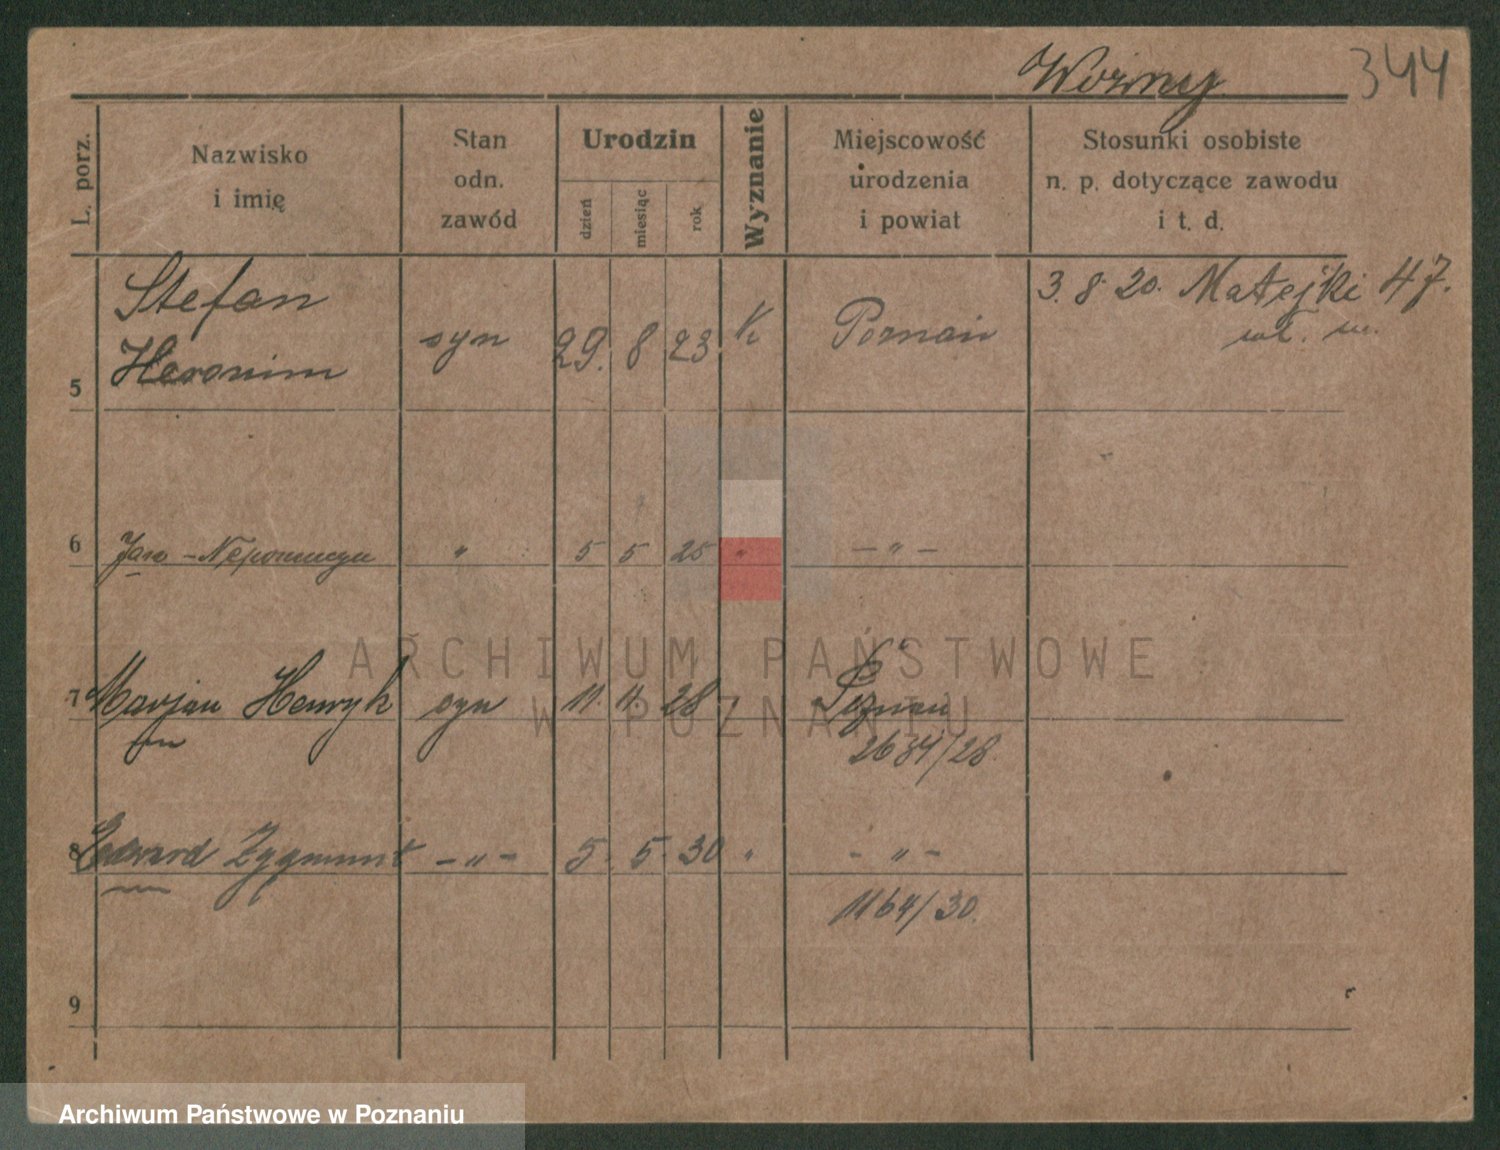 Woźny 344
L. porz.
Nazwisko
i imię
Stan
odn.
zawód
Urodzin
dzień
miesiąc
rok
Wyznanie
Miejscowość
urodzenia
i powiat
Stosunki osobiste
n. p. dotyczące zawodu
i t. d.
5 Stefan
Heronim syn 29. 8 23 k Poznań 3. 8. 20. Matejki 47.
6 Jan - Nepomucyn " 5 5 25 " - " -
7 Marjan Henryk syn 11. 11. 28 Poznań
2634/28.
8 Edward Zygmunt - " - 5. 5. 30 " - " -
1164/30.
9
ARCHIWUM PAŃSTWOWE
W POZNANIU
Archiwum Państwowe w Poznaniu